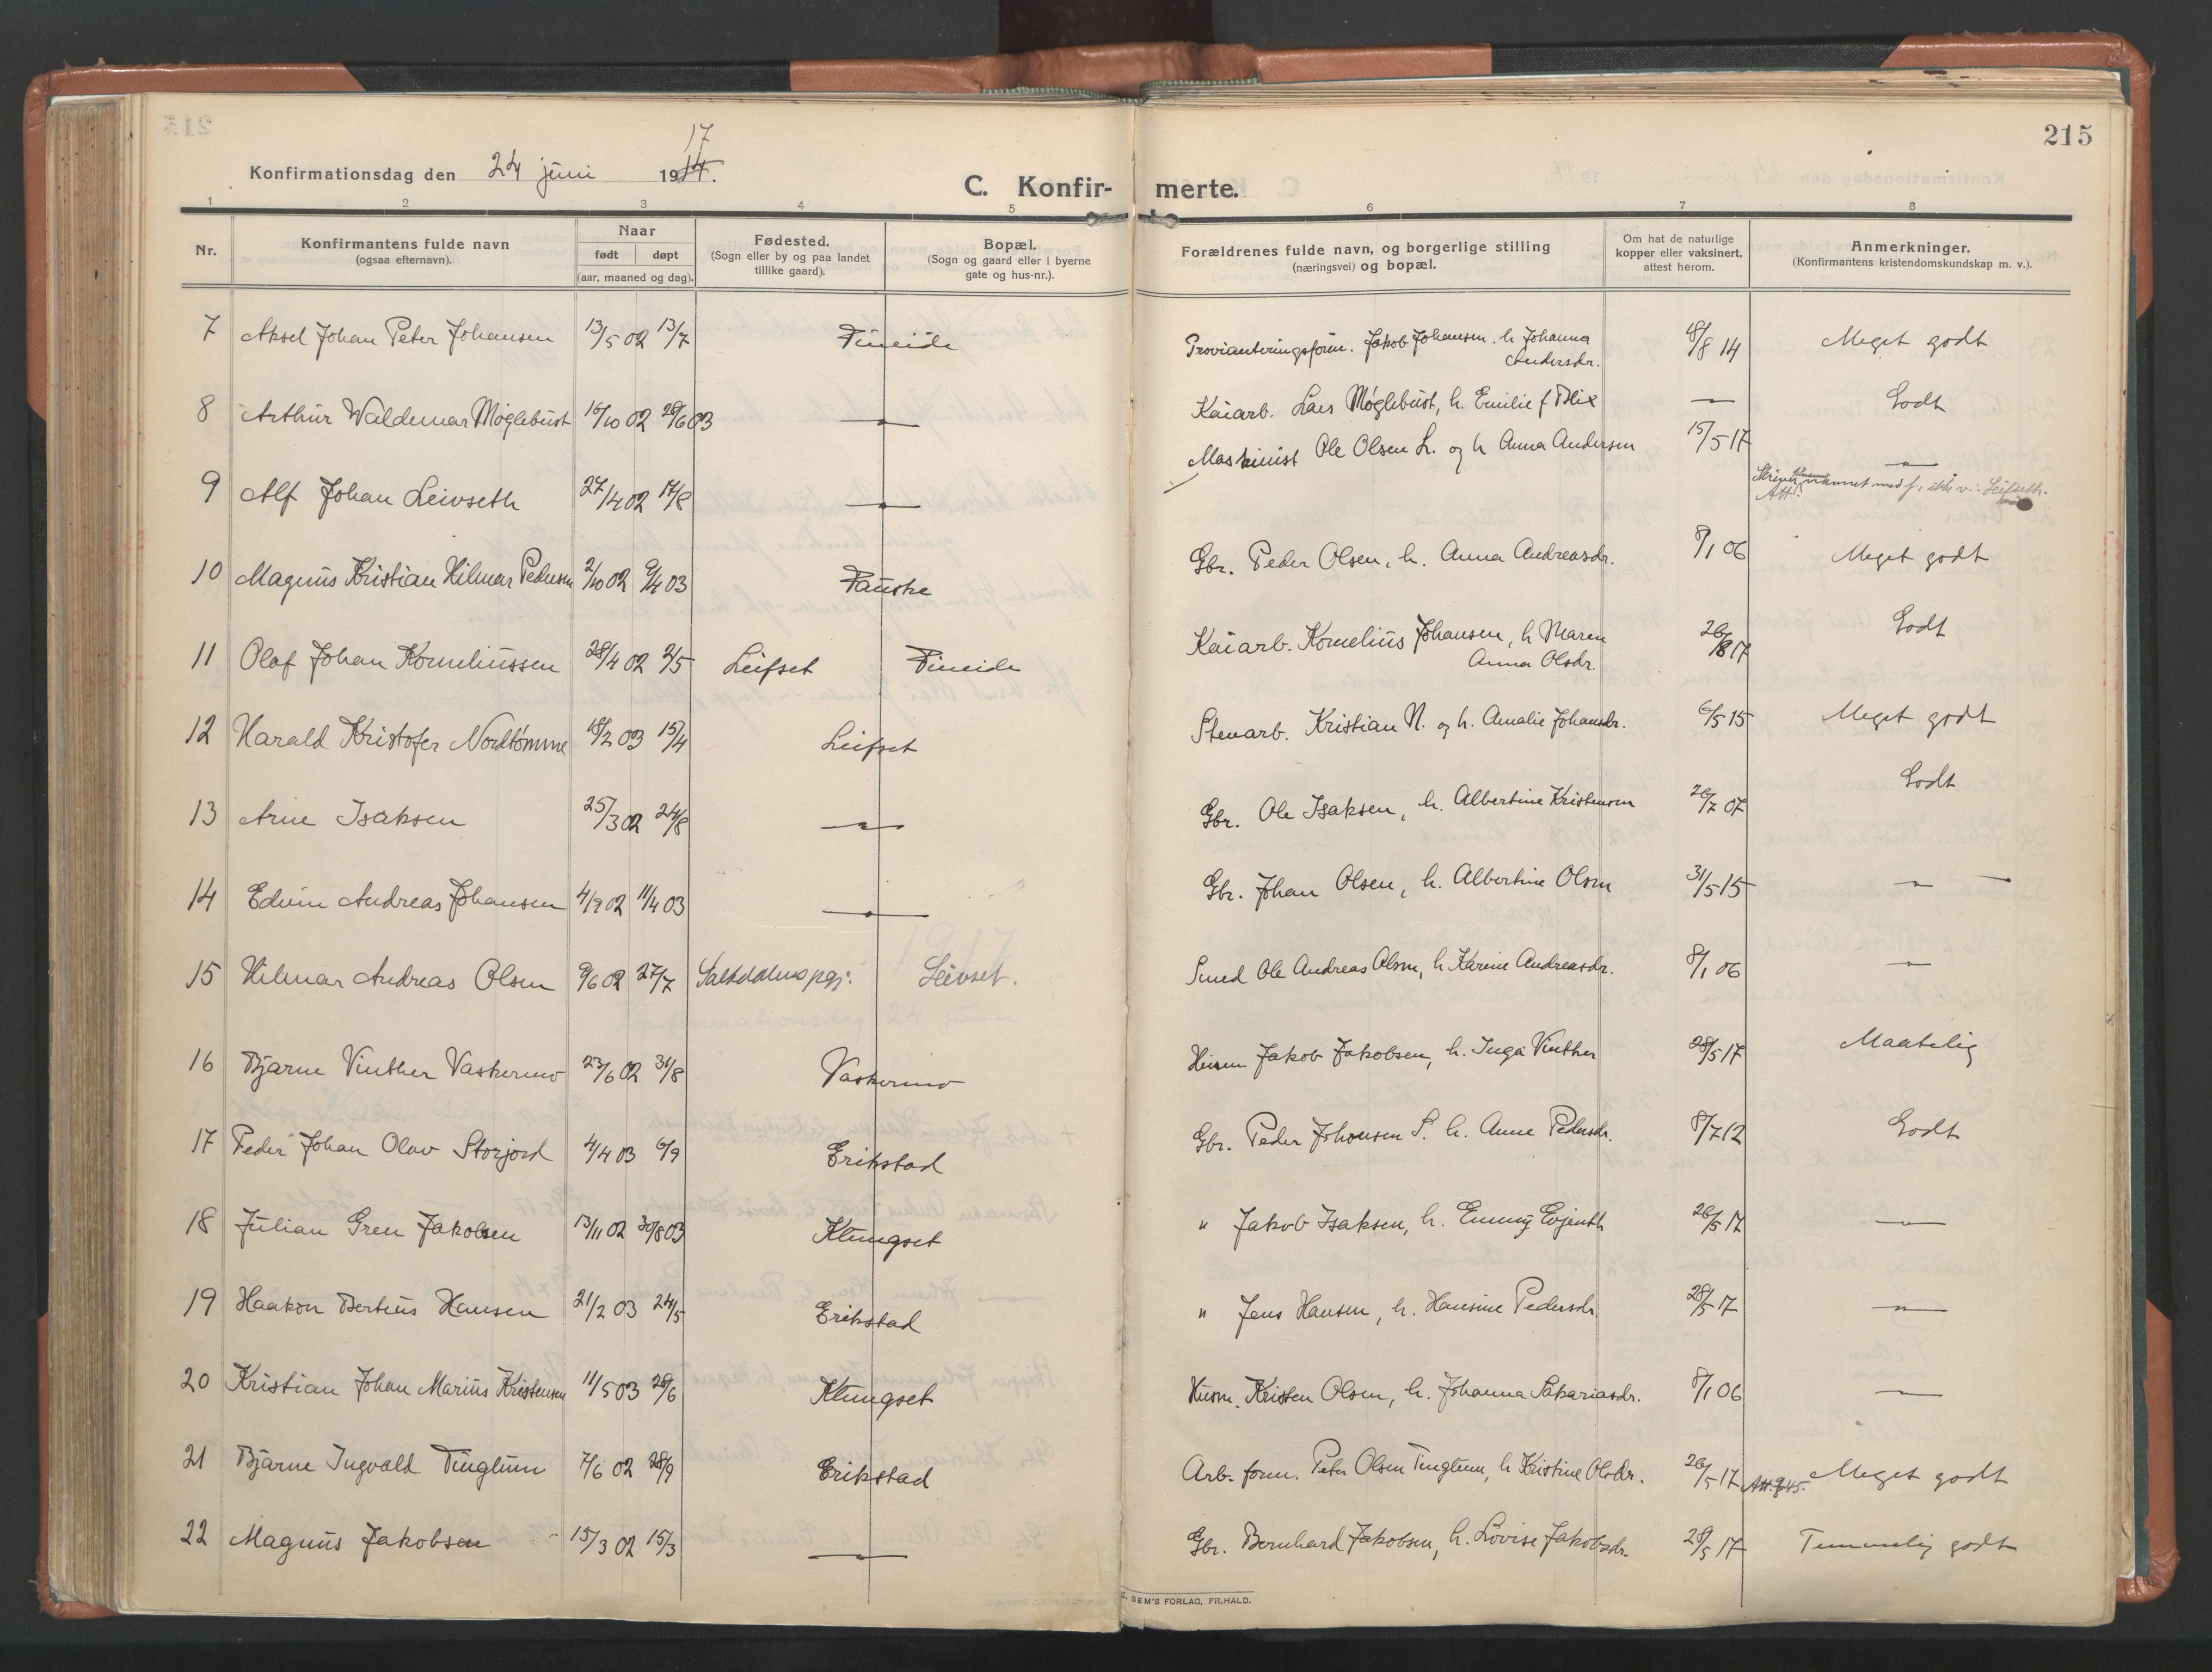 215
17
Konfirmationsdag den 24 juni 1914.
C. Konfir- merte.
1 2 3 4 5 6 7 8
Nr.
Konfirmantens fulde navn
(ogsaa efternavn).
Naar
født døpt
(aar, maaned og dag).
Fødested.
(Sogn eller by og paa landet
tillike gaard).
Bopæl.
(Sogn og gaard eller i byerne
gate og hus-nr.).
Forældrenes fulde navn, og borgerlige stilling
(næringsvei) og bopæl.
Om hat de naturlige
kopper eller vaksinert,
attest herom.
Anmerkninger.
(Konfirmantens kristendomskundskap m. v.).
7 Aksel Johan Peter Johansen 13/5 02 13/7 Fineide Provianteringsform. Jakob Johansen. h Johanna Andersdr. 18/8 14 Meget godt
8 Arthur Waldemar Møglebust 16/10 02 28/6 03 —"— Kaiarb. Lars Møglebust, h. Emilie f Blix — Godt
9 Alf Johan Leivseth 27/4 02 17/8 —"— Maskinist Ole Olsen L. og h Anna Andersen 15/5 17 —"—
Skriver navnet med f, ikke v: Leifseth.
Att.
10 Magnus Kristian Hilmar Pedersen 2/10 02 9/4 03 Fauske Gbr. Peder Olsen, h. Anna Andreasdr. 8/1 06 Meget godt
11 Olaf Johan Korneliussen 28/4 02 2/5 Leifset Fineide Kaiarb. Kornelius Johansen, h Maren Anna Olsdr. 26/8 17 Godt
12 Harald Kristofer Nordtømme 18/2 03 15/4 Leifset Stenarb. Kristian N. og h. Amalie Johansdr. 6/5 15 Meget godt
13 Arne Isaksen 25/3 02 24/8 —"— Gbr. Ole Isaksen, h. Albertine Kristensen 26/7 07 Godt
14 Edvin Andreas Johansen 4/9 02 11/4 03 —"— Gbr. Johan Olsen, h. Albertine Olsen 31/5 15 —"—
15 Hilmar Andreas Olsen 9/6 02 27/7 Saltdalens pgj: Leivset. Smed Ole Andreas Olsen, h Karine Andreasdr. 8/1 06 —"—
16 Bjarne Vinther Vaskermo 23/6 02 31/8 Vaskermo Husm. Jakob Jakobsen, h. Inga Vinther 28/5 17 Maatelig
17 Peder Johan Olav Storjord 4/4 03 6/9 Erikstad Gbr. Peder Johansen S. h. Anne Pedersdr. 8/7 12 Godt
18 Julian Gren Jakobsen 13/11 02 30/8 03 Klungset " Jakob Isaksen, h. Emmy Evjenth 26/5 17 —"—
19 Haakon Bertius Hansen 21/2 03 24/5 Erikstad " Jens Hansen, h. Hansine Pedersdr. 28/5 17 —"—
20 Kristian Johan Marius Kristensen 11/5 03 28/6 Klungset Husm. Kristen Olsen, h. Johanna Sakariasdr. 8/1 06 —"—
21 Bjarne Ingvald Tinglum 7/6 02 28/9 Erikstad Arb. form. Peter Olsen Tinglum, h Kristine Olsdr. 26/5 17 Meget godt
22 Magnus Jakobsen 15/3 02 15/3 —"— Gbr. Bernhard Jakobsen, h. Lovise Jakobsdr. 28/5 17 Temmelig godt
SEM'S FORLAG, FR.HALD.